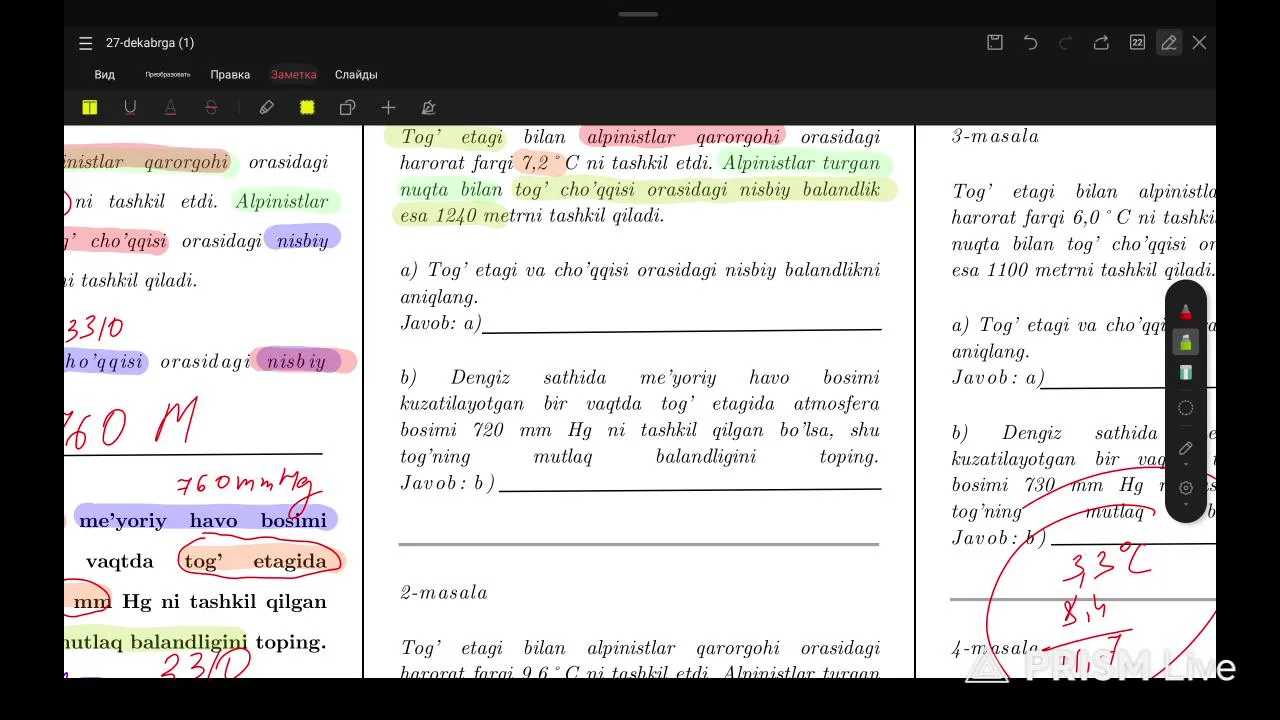 27-dekabrga (1)
Вид
Преобразовать
Правка
Заметка
Слайды
22
qarorgohi orasidagi
ni tashkil etdi. Alpinistlar
cho'qqisi orasidagi nisbiy
tashkil qiladi.
3310
orasidagi nisbiy
760 M
760 mm Hg
me'yoriy havo bosimi
vaqtda tog' etagida
mm Hg ni tashkil qilgan
balandligini toping.
3310
Tog' etagi bilan alpinistlar qarorgohi orasidagi
harorat farqi 7,2°C ni tashkil etdi. Alpinistlar turgan
nuqta bilan tog' cho'qqisi orasidagi nisbiy balandlik
esa 1240 metrni tashkil qiladi.
a) Tog' etagi va cho'qqisi orasidagi nisbiy balandlikni
aniqlang.
Javob: a)
b) Dengiz sathida me'yoriy havo bosimi
kuzatilayotgan bir vaqtda tog' etagida atmosfera
bosimi 720 mm Hg ni tashkil qilgan bo'lsa, shu
tog'ning mutlaq balandligini toping.
Javob: b)
2-masala
Tog' etagi bilan alpinistlar qarorgohi orasidagi
harorat farqi 9,6°C ni tashkil etdi. Alpinistlar turgan
3-masala
Tog' etagi bilan
harorat farqi 6,0°C ni
nuqta bilan tog' cho'qqisi
esa 1100 metrni tashkil qiladi.
a) Tog' etagi va
aniqlang.
Javob: a)
b) Dengiz sathida
kuzatilayotgan bir
bosimi 730 mm Hg
tog'ning mutlaq
Javob: b)
3,3°C
8,4
4-masala
PRISM Live